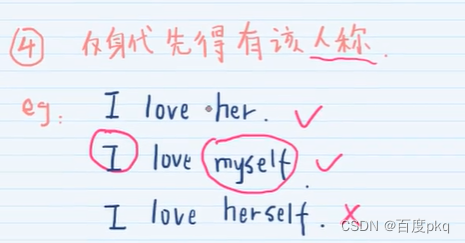 ④ 反身代先得有该人称.
eg: I love her. ✓
I love myself. ✓
I love herself. ✗
CSDN @百度pkq